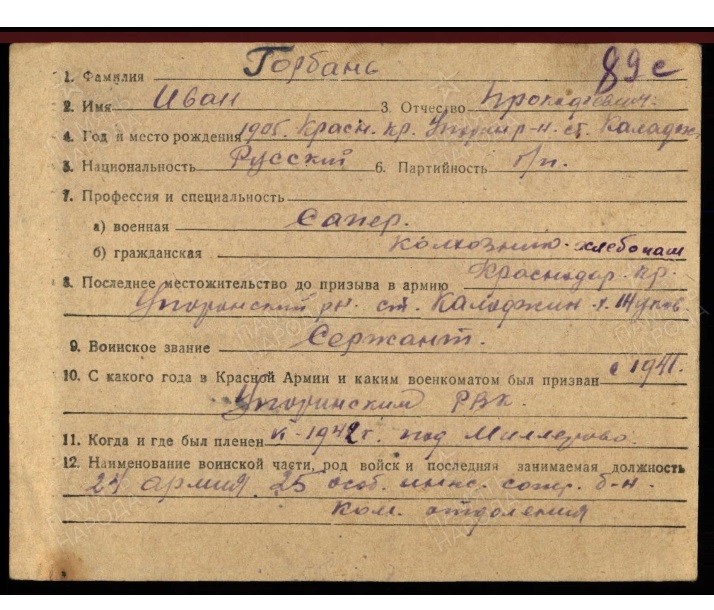 89 с
1. Фамилия Горбань
2. Имя Иван 3. Отчество
4. Год и место рождения 1905. Красн. кр. р-н. ст. Каладж,
5. Национальность Русский 6. Партийность б/п.
7. Профессия и специальность
а) военная Сапер.
б) гражданская колхозник-хлебопаш
Краснодар. кр.
8. Последнее местожительство до призыва в армию
рн. ст. Каладжин х. Жуков
9. Воинское звание Сержант.
10. С какого года в Красной Армии и каким военкоматом был призван с 1941.
РВК.
11. Когда и где был пленен 1942 г. под Миллерово.
12. Наименование воинской части, род войск и последняя занимаемая должность
армия 25 особ. инж. сапер. б-н.
Ком. отделения